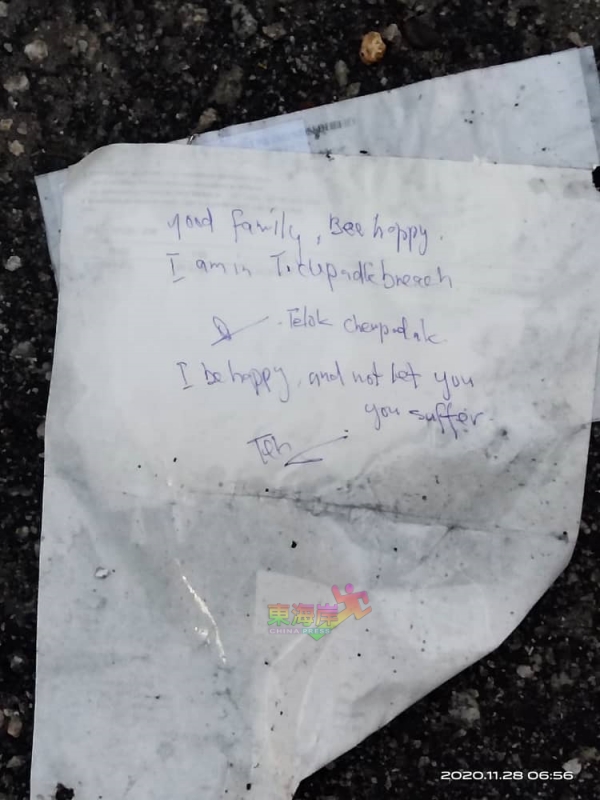 good family, Bee happy.
I am in T.cupadkbreach
Telok chempadak.
I be happy, and not let you
you suffer.
Teh
東海岸
CHINA PRESS
2020.11.28 06:56